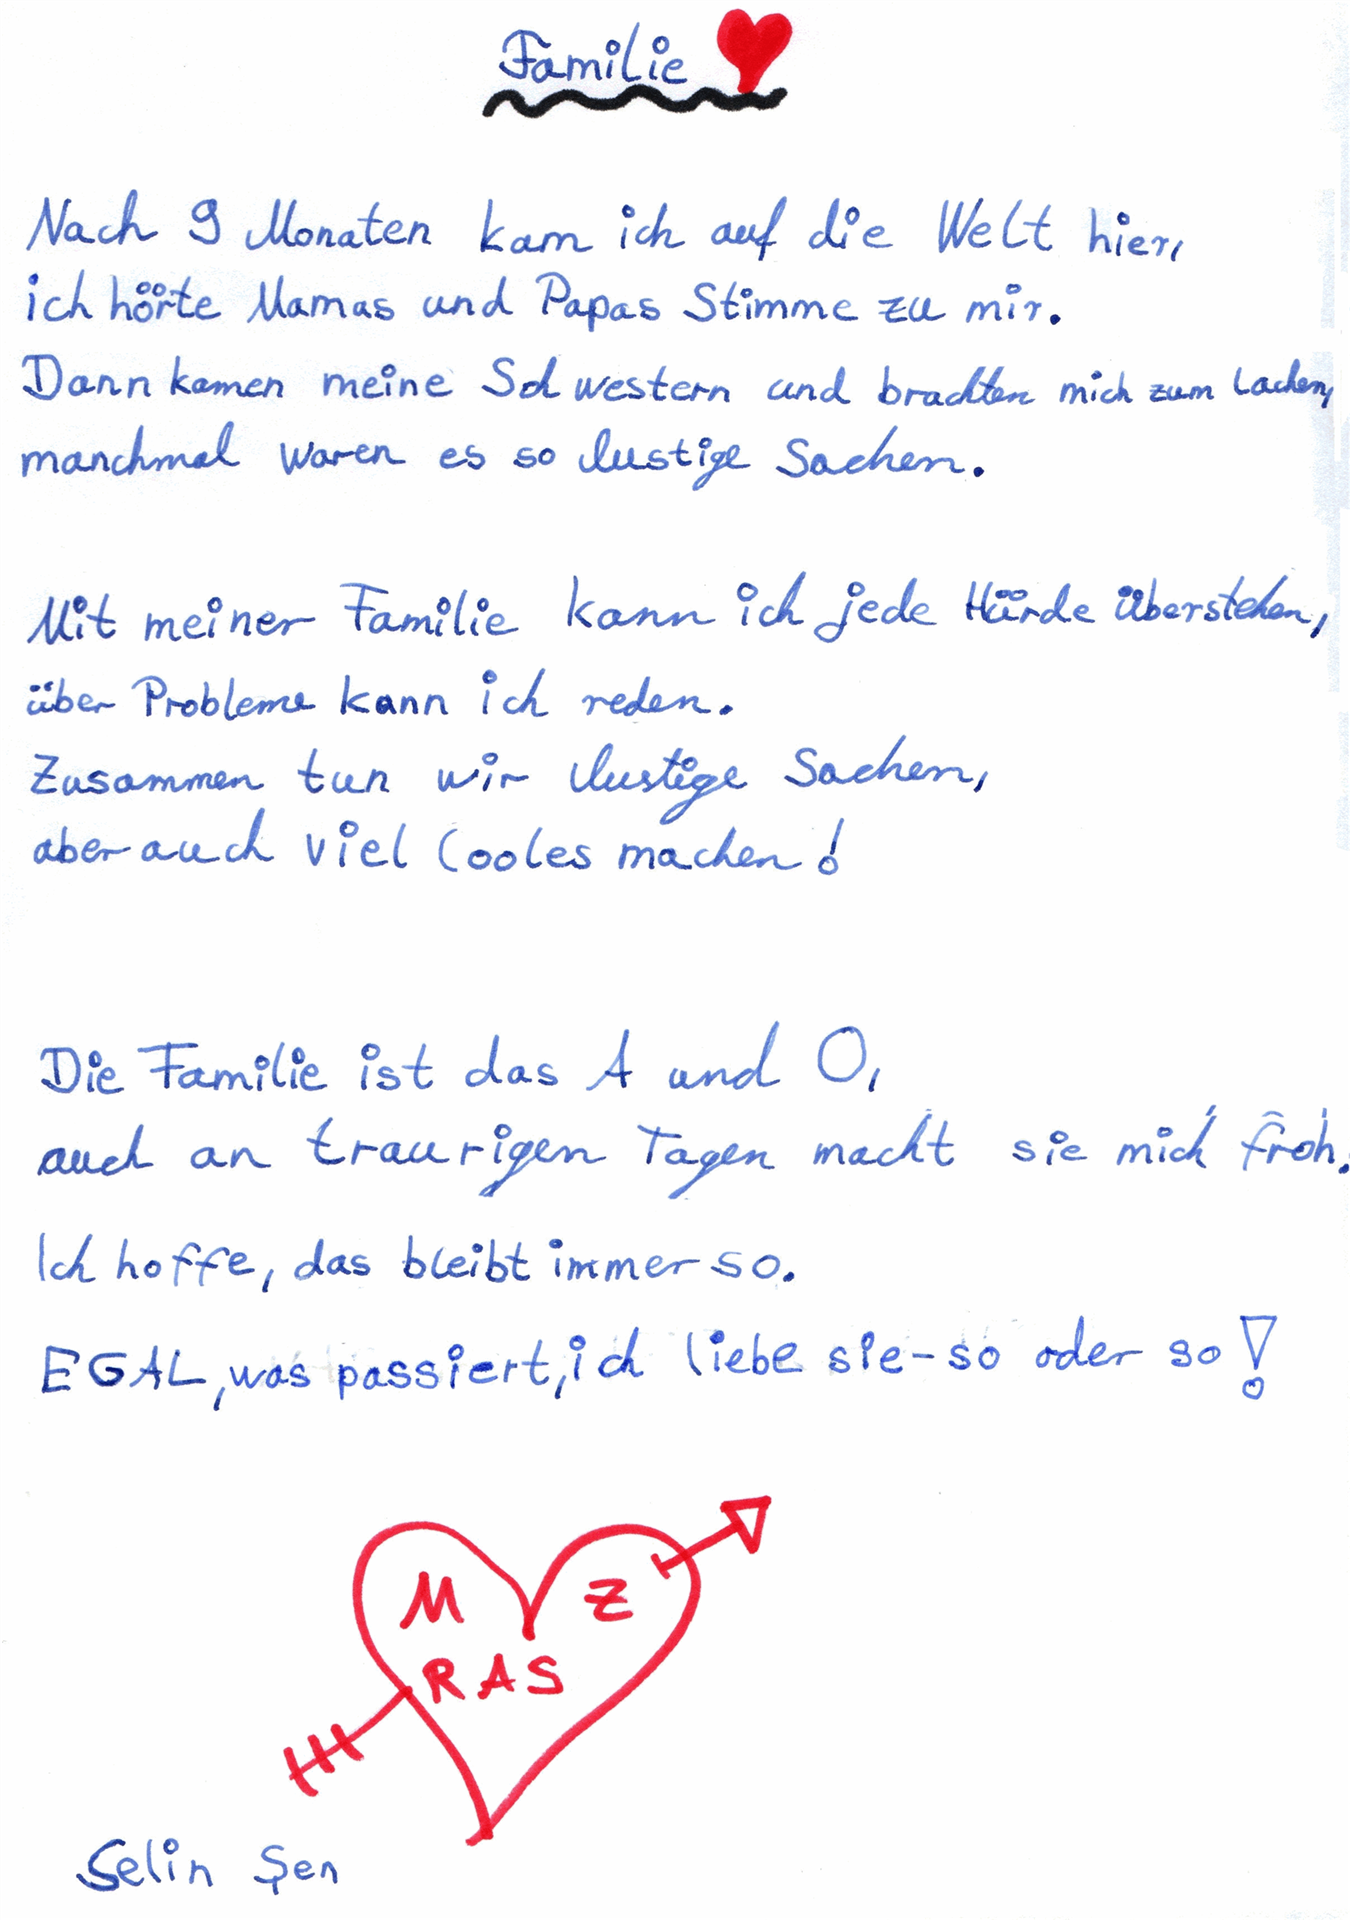 Familie
Nach 9 Monaten kam ich auf die Welt hier,
ich hörte Mamas und Papas Stimme zu mir.
Dann kamen meine Schwestern und brachten mich zum Lachen,
manchmal waren es so lustige Sachen.
Mit meiner Familie kann ich jede Hürde überstehen,
über Probleme kann ich reden.
Zusammen tun wir lustige Sachen,
aber auch viel Cooles machen!
Die Familie ist das A und O,
auch an traurigen Tagen macht sie mich froh.
Ich hoffe, das bleibt immer so.
EGAL, was passiert, ich liebe sie - so oder so!
M Z
RAS
Selin Şen